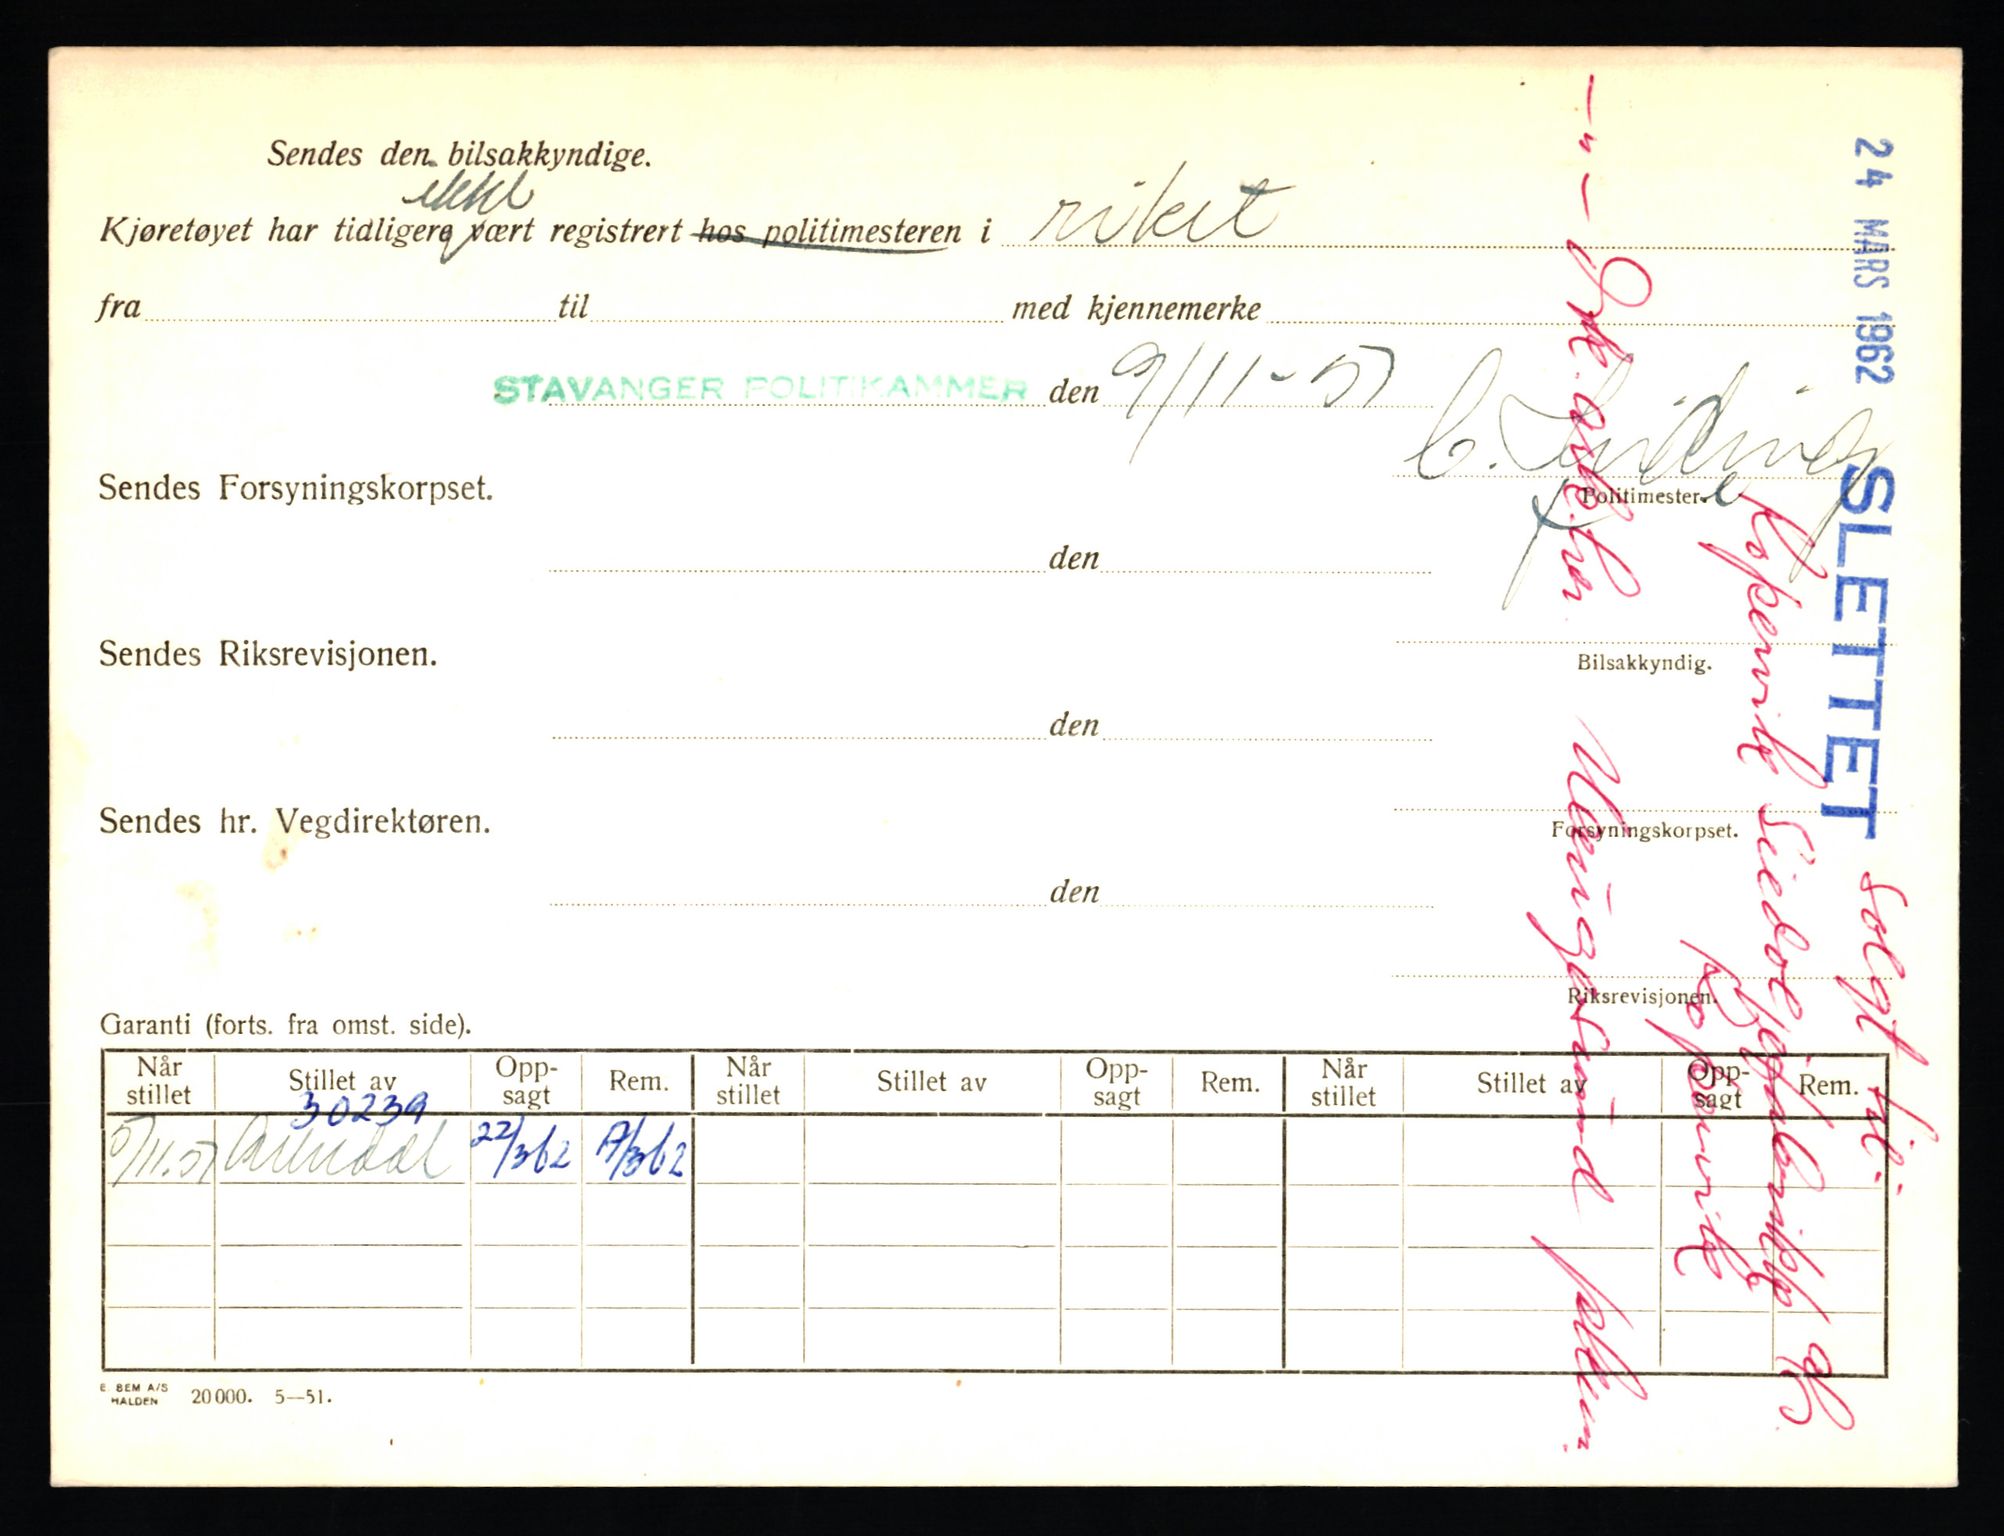 Sendes den bilsakkyndige.
ikke
Kjøretøyet har tidligere vært registrert hos politimesteren i riket
fra til med kjennemerke
STAVANGER POLITIKAMMER den 9/11-51
Politimester.
Sendes Forsyningskorpset.
den
Bilsakkyndig.
Sendes Riksrevisjonen.
den
Forsyningskorpset.
Sendes hr. Vegdirektøren.
den
Riksrevisjonen.
Garanti (forts. fra omst. side).
Når stillet Stillet av Opp-sagt Rem. Når stillet Stillet av Opp-sagt Rem. Når stillet Stillet av Opp-sagt Rem.
30239
5/11.51 Arendal 22/3 62 A/3 62
E. BEM A/S
HALDEN 20 000. 5—51.
24 MARS 1962 SLETTET Solgt til:
Kopervik Sildoljefabrikk A/S
Kopervik